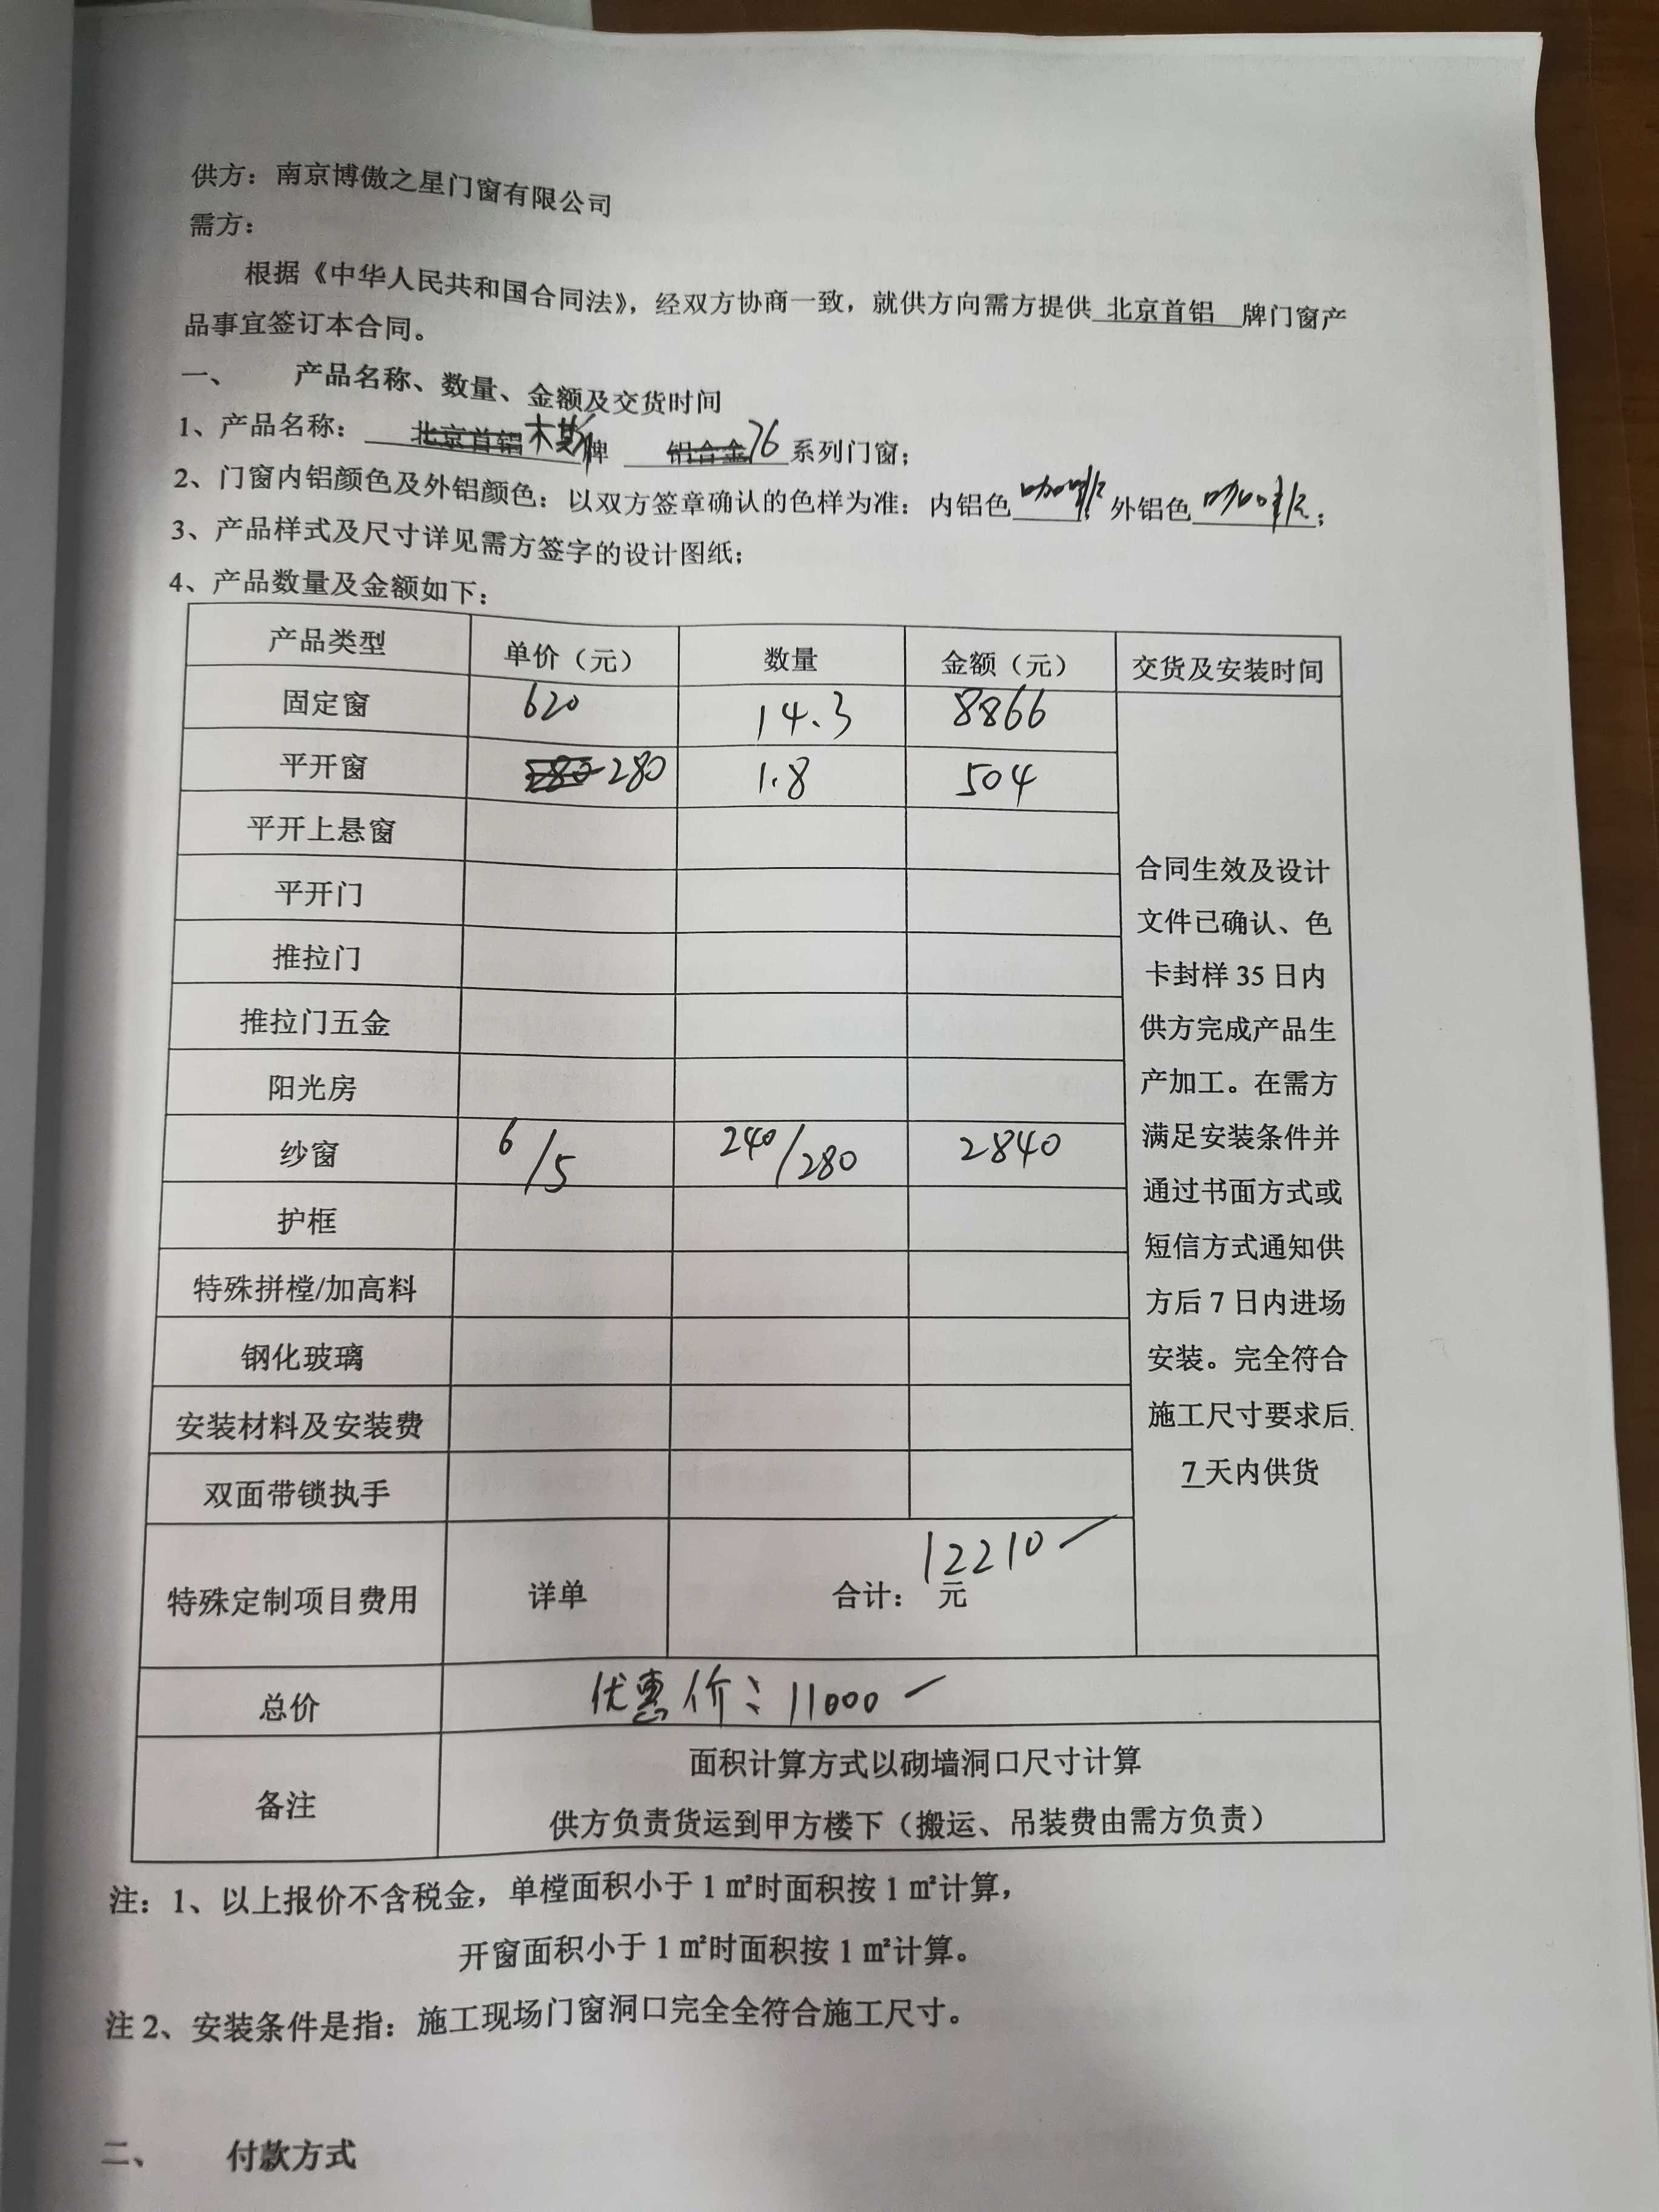 供方：南京博傲之星门窗有限公司
需方：
根据《中华人民共和国合同法》，经双方协商一致，就供方向需方提供 北京首铝 牌门窗产
品事宜签订本合同。
一、 产品名称、数量、金额及交货时间
1、产品名称： 北京首铝 木斯 牌 铝合金 76 系列门窗；
2、门窗内铝颜色及外铝颜色：以双方签章确认的色样为准：内铝色 咖啡 外铝色 咖啡 ；
3、产品样式及尺寸详见需方签字的设计图纸；
4、产品数量及金额如下：
产品类型 单价（元） 数量 金额（元） 交货及安装时间
固定窗 620 14.3 8866
平开窗 280 1.8 504
平开上悬窗
平开门
推拉门
推拉门五金
阳光房
纱窗 6/5 240/280 2840
护框
特殊拼樘/加高料
钢化玻璃
安装材料及安装费
双面带锁执手
合同生效及设计
文件已确认、色
卡封样 35 日内
供方完成产品生
产加工。在需方
满足安装条件并
通过书面方式或
短信方式通知供
方后 7 日内进场
安装。完全符合
施工尺寸要求后
7 天内供货
特殊定制项目费用 详单 合计： 12210 元
总价 优惠价：11000
备注 面积计算方式以砌墙洞口尺寸计算
供方负责货运到甲方楼下（搬运、吊装费由需方负责）
注：1、以上报价不含税金，单樘面积小于 1 ㎡时面积按 1 ㎡计算，
开窗面积小于 1 ㎡时面积按 1 ㎡计算。
注 2、安装条件是指：施工现场门窗洞口完全全符合施工尺寸。
二、 付款方式